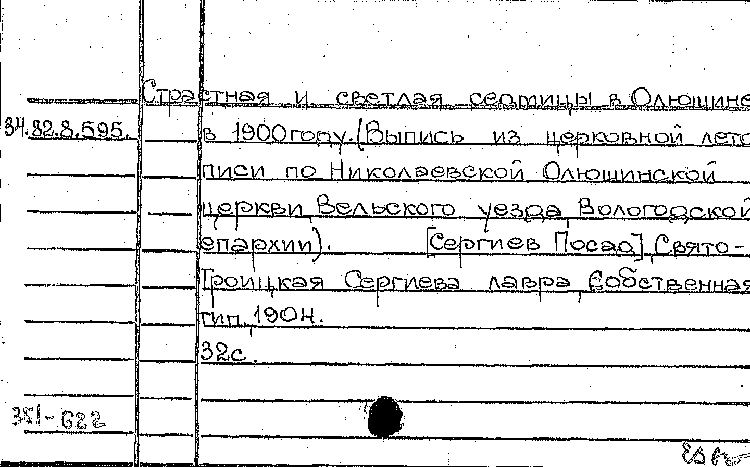 Страстная и светлая седмицы в Олюшине
34.82.8.595. в 1900 году. (Выпись из церковной лето
писи по Николаевской Олюшинской
церкви, Вельского уезда, Вологодской
епархии). [Сергиев Посад], Свято-
Троицкая Сергиева лавра, Собственная
тип., 1904.
32с.
351-622